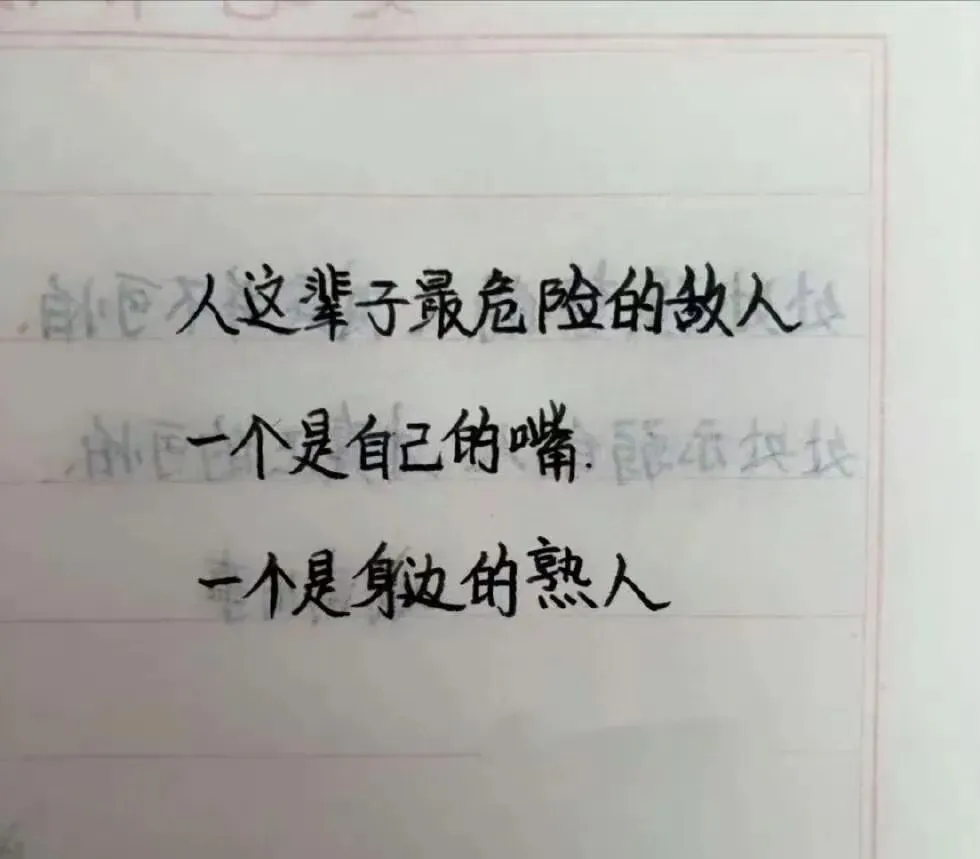 人这辈子最危险的敌人
一个是自己的嘴.
一个是身边的熟人